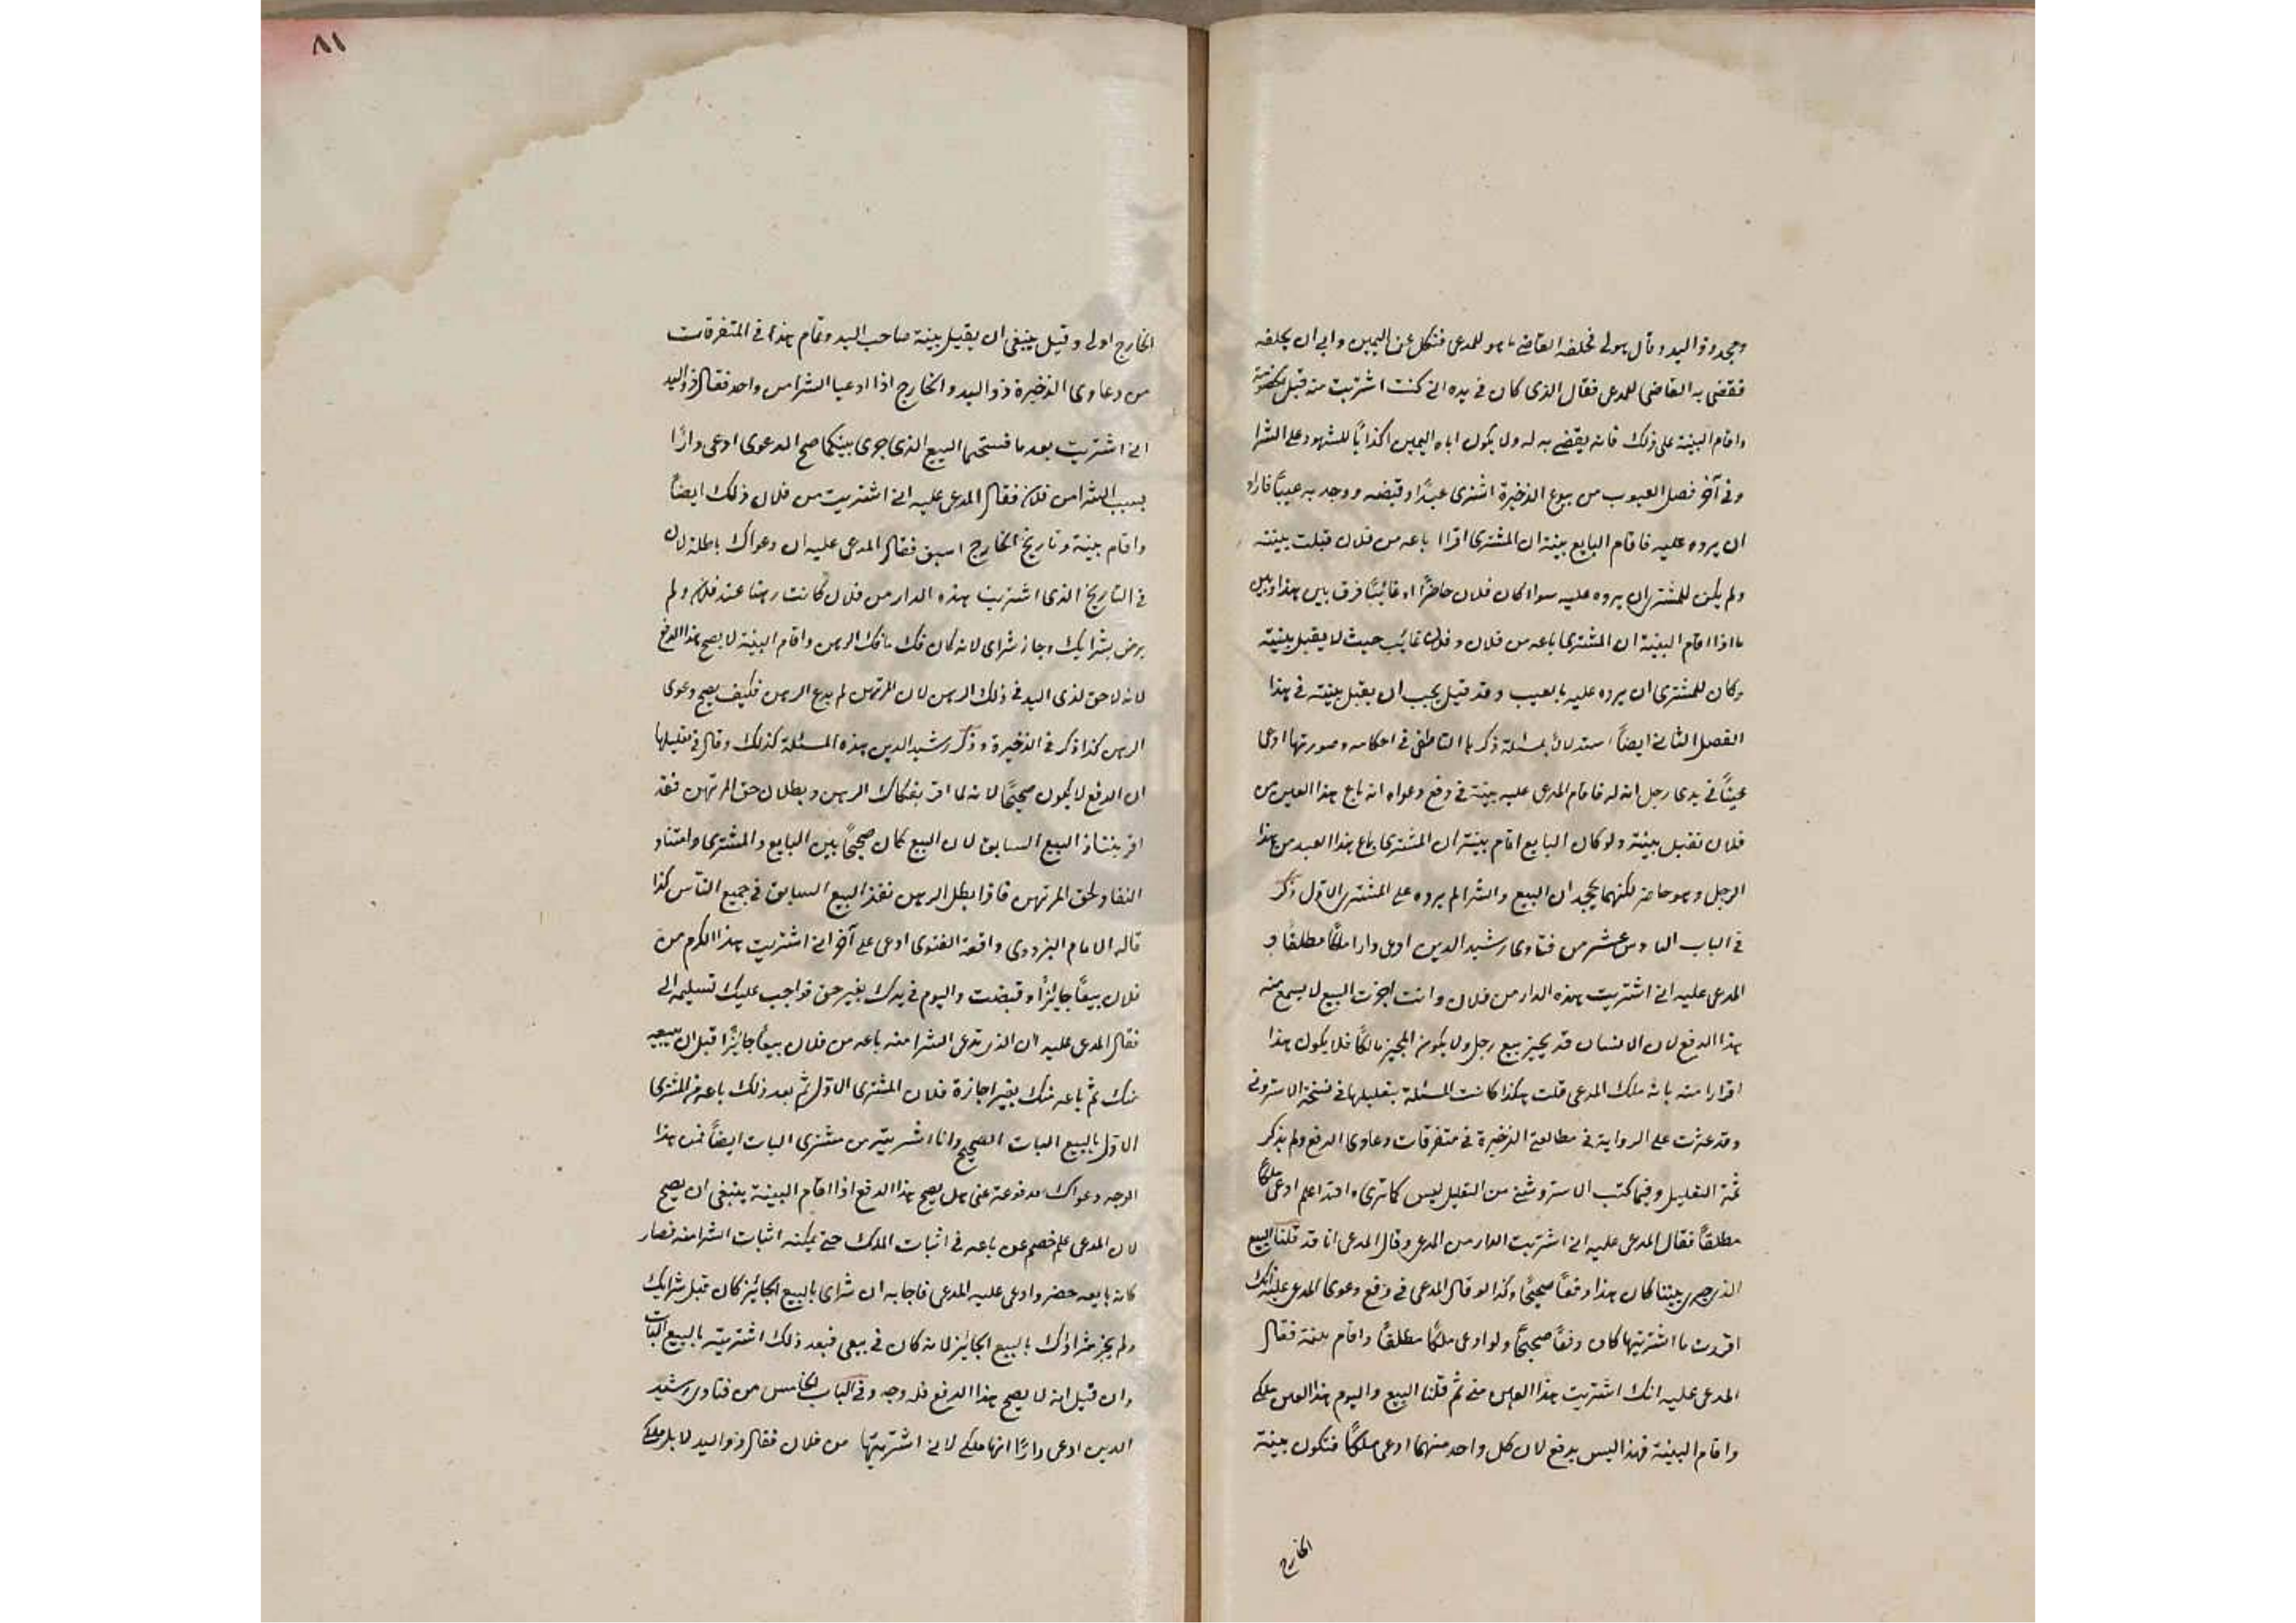 وجحد ذو اليد وقال هو لي فحلفه القاضي ما هو للمدعي فنكل عن اليمين وابى ان يحلفه
فقضى به القاضي للمدعي فقال الذي كان في يده اني كنت اشتريت منه قبل الخصومة
واقام البينة على ذلك فانه يقضى به له ولا يكون اباه اليمين اكذابًا للشهود على الشرا
وفي آخر فصل العيوب من بيوع الذخيرة اشترى عبدًا وقبضه ووجد به عيبًا فاراد
ان يرده عليه فاقام البايع بينة ان المشتري اقر انا باعه من فلان قبلت بينته
ولم يكن للمشتري ان يرده عليه سواء كان فلان حاضرًا او غائبًا فرق بين هذا وبين
ما اذا اقام البينة ان المشتري باعه من فلان وفلان غائب حيث لا يقبل بينته
وكان للمشتري ان يرده عليه بالعيب وقد قيل يجب ان يقبل بينته في هذا
الفصل الثاني ايضاً استدلالا بمسئلة ذكرها الناطفي في احكامه وصورتها ادعى
عينًا في يدي رجل انه له فاقام المدعى عليه بينة في دفع دعواه انه باع هذا العين من
فلان تقبل بينته ولو كان البايع اقام بينة ان المشتري باع هذا العبد من هذا
الرجل وهو حاضر لكنهما يجحدان البيع والشرا لم يرده على المشتري الاول ذكر
في الباب السادس عشر من فتاوى رشيد الدين ادعى دارا ملكًا مطلقًا و
المدعى عليه اني اشتريت هذه الدار من فلان وانت اجزت البيع لا يسمع منه
هذا الدفع لان الانسان قد يجيز بيع رجل ولا يكون المجيز مالكًا فلا يكون هذا
اقرارا منه بانه ملك المدعي قلت هكذا كانت المسئلة بتعليلها في نسخة الاستروشني
وقد عثرت على الرواية في مطالعة الذخيرة في متفرقات دعاوى الدفع ولم يذكر
ثمة التعليل وفيما كتب الاستروشني من التعليل ليس كما ترى والله اعلم ادعى ملكًا
مطلقًا فقال المدعى عليه اني اشتريت الدار من المدعي وقال المدعي انا قد قلنا البيع
الذي جرى بيننا كان هذا دفعًا صحيحًا وكذا لو قال المدعي في دفع دعوى المدعى عليه انك
اقررت ما اشتريتها كان دفعًا صحيحًا ولو ادعى ملكًا مطلقًا واقام بينة فقال
المدعى عليه انك اشتريت هذا العين مني ثم قلنا البيع واليوم هذا العين ملكي
واقام البينة فهذا ليس بدفع لان كل واحد منهما ادعى ملكًا فتكون بينة
الخارج
٨١
الخارج اولى وقيل ينبغي ان يقبل بينة صاحب اليد وتمام هذا في المتفرقات
من دعاوى الذخيرة ذو اليد والخارج اذا ادعيا الشرا من واحد فقال ذو اليد
اني اشتريت بعد ما فسختما البيع الذي جرى بينكما صح الدعوى ادعى دارًا
بسبب الشرا من فلان فقال المدعى عليه اني اشتريت من فلان ذلك ايضاً
واقام بينة وتاريخ الخارج اسبق فقال المدعى عليه ان دعواك باطلة لان
في التاريخ الذي اشتريت هذه الدار من فلان كانت رهنا عند فلان ولم
يرض بشرايك وجاز شراي لانه كان فك ما فك الرهن واقام البينة لا يصح هذا الدفع
لانه لا حق لذي اليد في ذلك الرهن لان المرتهن لم يدع الرهن فكيف يصح دعوى
الرهن كذا ذكر في الذخيرة وذكر رشيد الدين هذه المسئلة كذلك وقال في تعليلها
ان الدفع لا يكون صحيحًا لانه لما اقر بفكاك الرهن وبطلان حق المرتهن فقد
اقر بنفاذ البيع السابق لان البيع كان صحيحًا بين البايع والمشتري وامتناع
النفاذ لحق المرتهن فاذا بطل الرهن نفذ البيع السابق في جميع الناس كذا
قاله الامام البزدوي واقعة الفتوى ادعى على آخر اني اشتريت هذا الكرم من
فلان بيعًا جايزًا وقبضت واليوم في يدك بغير حق فواجب عليك تسليمه الي
فقال المدعى عليه ان الذي تدعي الشرا منه باعه من فلان بيعًا جايزًا قبل ان يبيعه
منك ثم باعه منك بغير اجازة فلان المشتري الاول ثم بعد ذلك باعه من المشتري
الاول بالبيع البات الصحيح وانا اشتريته من مشتري البات ايضًا فمن هذا
الوجه دعواك مدفوعة عني هل يصح هذا الدفع اذا اقام البينة ينبغي ان يصح
لان المدعى عليه خصم عن باعه في اثبات الملك حتى يمكنه اثبات الشرا منه فصار
كانه بايعه حضر وادعى عليه المدعي فاجابه ان شراي بالبيع الجائز كان قبل شرايك
ولم يجز شراؤك بالبيع الجائز لانه كان في بيعي فبعد ذلك اشتريته بالبيع البات
وان قيل انه لا يصح هذا الدفع فله وجه وفي الباب الخامس من فتاوى رشيد
الدين ادعى دارًا انها ملكي لاني اشتريتها من فلان فقال ذو اليد لا بل ملكي